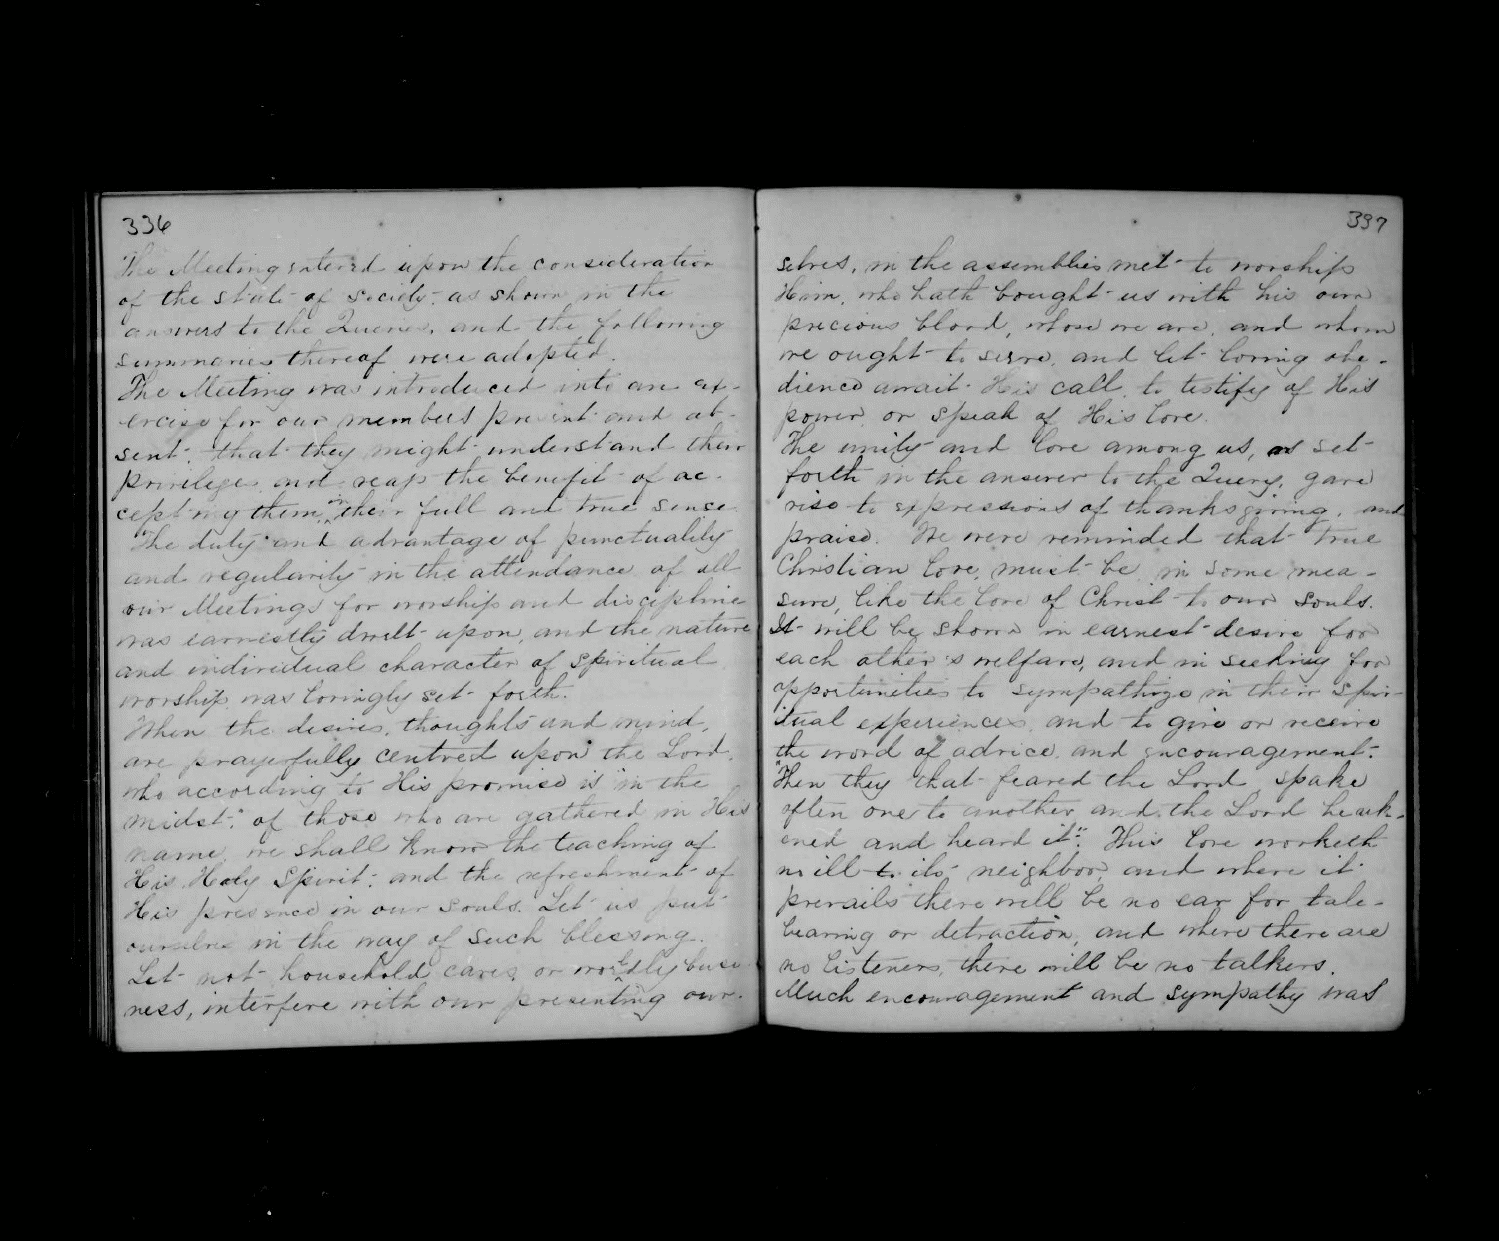 336
The Meeting entered upon the consideration
of the state of Society as shown in the
answers to the Queries, and the following
summaries thereof were adopted.
The Meeting was introduced into an ex-
ercise for our members present and ab-
sent, that they might understand their
privileges and reap the benefit of ac-
cepting them, in their full and true sense
The duty and advantage of punctuality
and regularity in the attendance of all
our Meetings for worship and discipline
was earnestly dwelt upon, and the nature
and individual character of spiritual
worship was lovingly set forth.
When the desires, thoughts and mind,
are prayerfully centred upon the Lord,
who according to His promise is "in the
midst" of those who are gathered in His
name, we shall know the teaching of
His Holy Spirit, and the refreshment of
His presence in our souls. Let us put
ourselves in the way of such blessing.
Let not household cares, or worldly busi-
ness, interfere with our presenting our-
337
selves, in the assemblies met to worship
Him, who hath bought us with his own
precious blood, whose we are, and whom
we ought to serve, and let loving obe-
dience await His call, to testify of His
power, or speak of His love.
The unity and love among us, as set
forth in the answer to the Query, gave
rise to expressions of thanksgiving, and
praise. We were reminded that true
Christian love, must be in some mea-
sure, like the love of Christ to our souls.
It will be shown in earnest desire for
each other's welfare, and in seeking for
opportunities to sympathize in their spir-
itual experiences, and to give or receive
the word of advice and encouragement.
"Then they that feared the Lord spake
often one to another, and the Lord heark-
ened and heard it". This love worketh
no ill to its neighbor, and where it
prevails there will be no ear for tale-
bearing or detraction, and where there are
no listeners, there will be no talkers.
Much encouragement and sympathy was